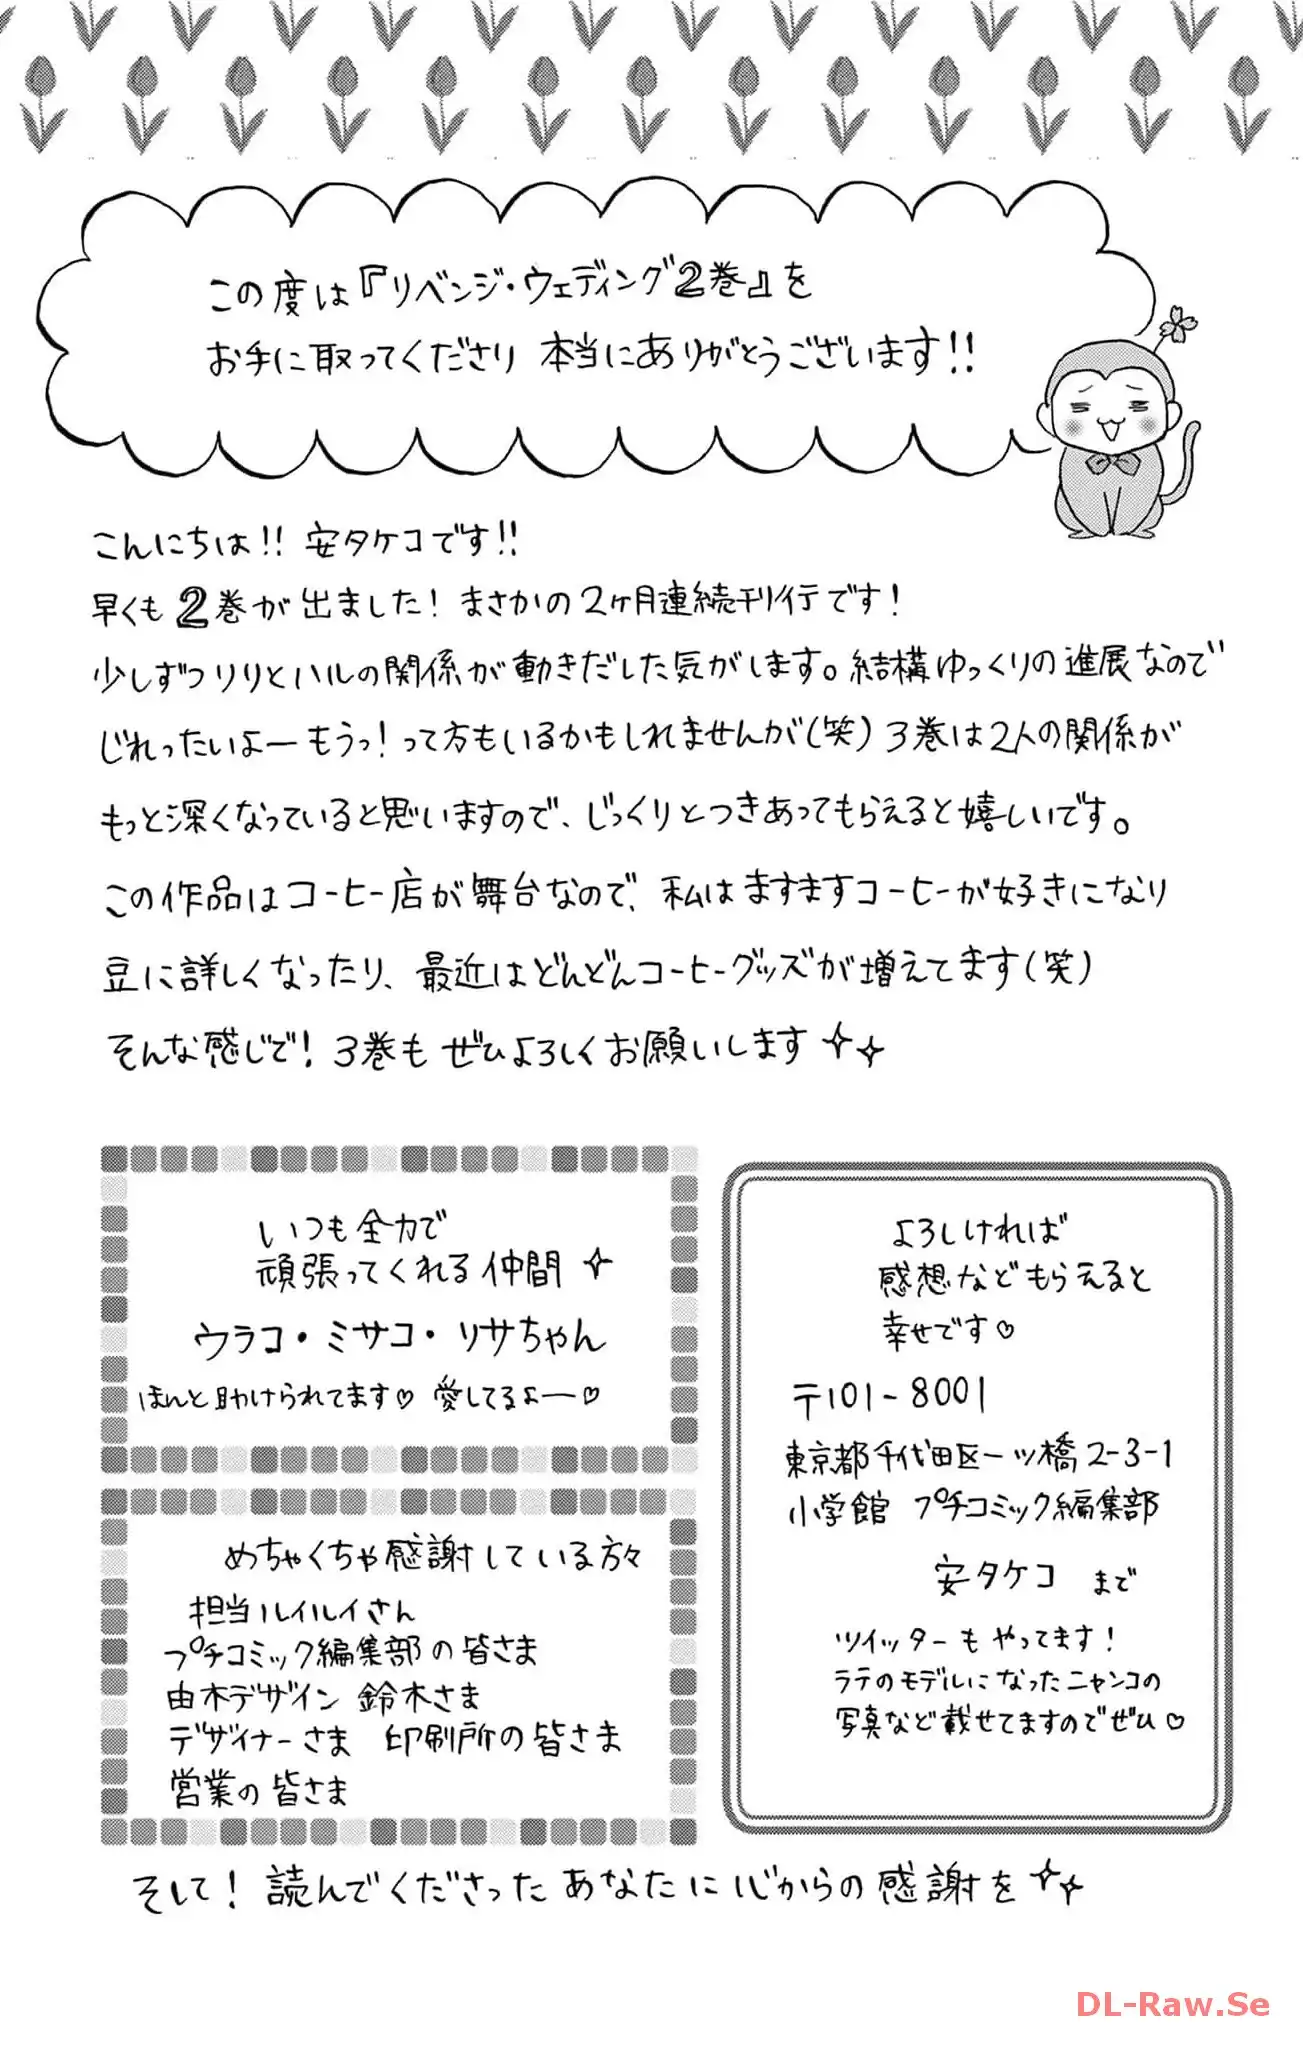 この度は『リベンジ・ウェディング2巻』を
お手に取ってくださり 本当にありがとうございます!!
こんにちは!! 安タケコです!!
早くも2巻が出ました! まさかの2ヶ月連続刊行です!
少しずつリリとハルの関係が動きだした気がします。結構ゆっくりの進展なので
じれったいよーもうっ!って方もいるかもしれませんが(笑) 3巻は2人の関係が
もっと深くなっていると思いますので、じっくりとつきあってもらえると嬉しいです。
この作品はコーヒー店が舞台なので、私はますますコーヒーが好きになり
豆に詳しくなったり、最近はどんどんコーヒーグッズが増えてます(笑)
そんな感じで! 3巻も ぜひよろしくお願いします
いつも全力で
頑張ってくれる仲間
ウラコ・ミサコ・リサちゃん
ほんと助けられてます♡ 愛してるよー♡
めちゃくちゃ感謝している方々
担当ルイルイさん
プチコミック編集部の皆さま
由木デザイン 鈴木さま
デザイナーさま 印刷所の皆さま
営業の皆さま
よろしければ
感想などもらえると
幸せです♡
〒101-8001
東京都千代田区一ツ橋2-3-1
小学館 プチコミック編集部
安タケコ まで
ツイッターもやってます!
ラテのモデルになったニャンコの
写真など載せてますのでぜひ♡
そして! 読んでくださったあなたに心からの感謝を
DL-Raw.Se